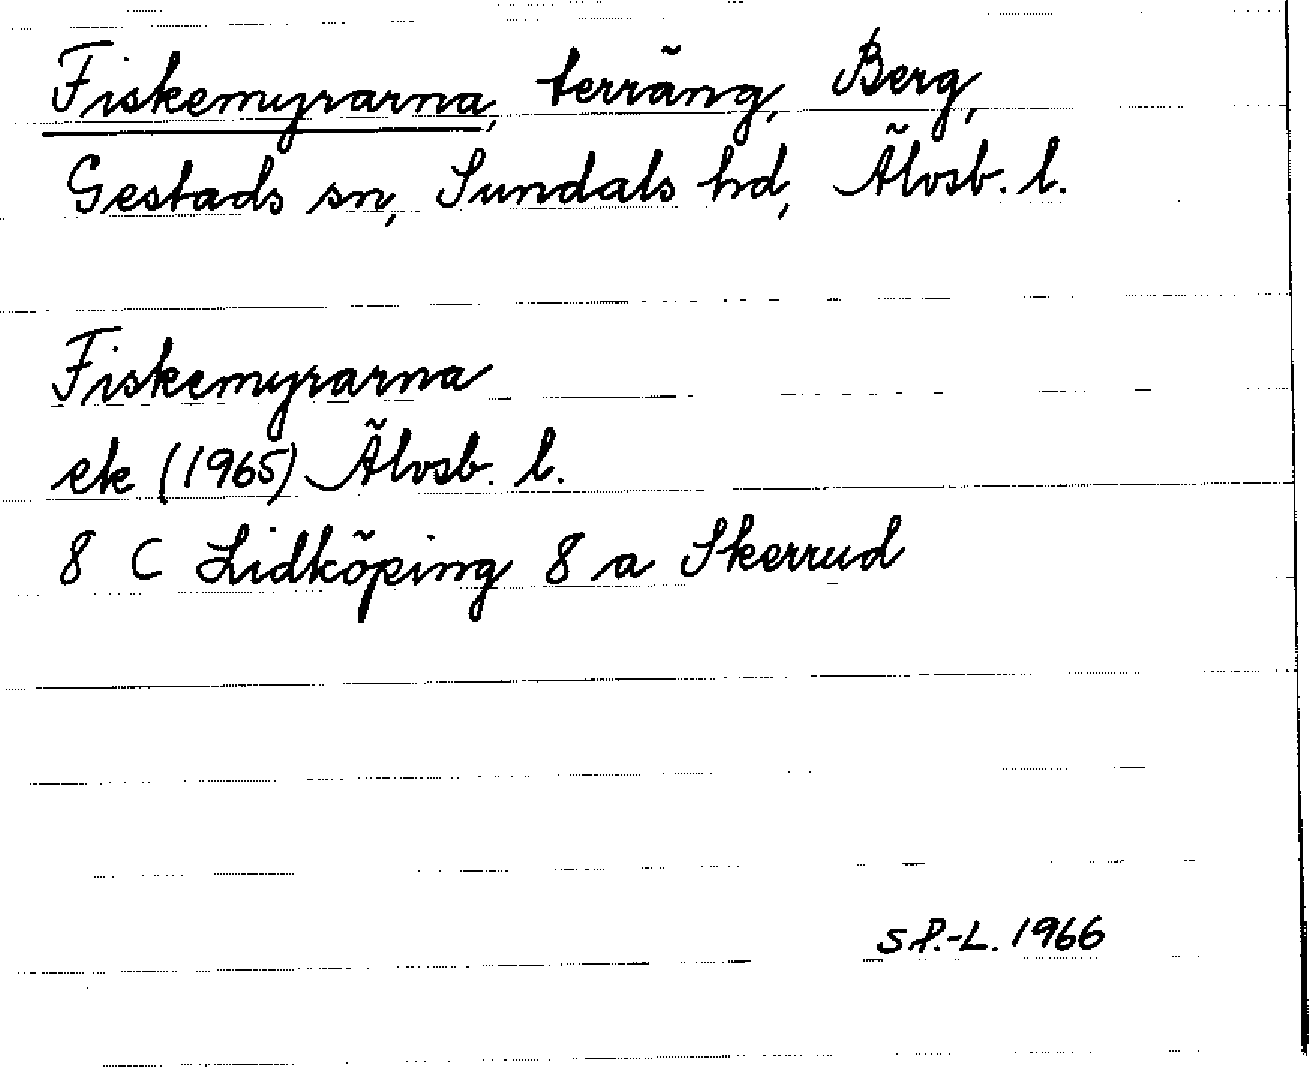 Fiskemyrarna, terräng, Berg,
Gestads sn, Sundals hd, Älvsb. l.
Fiskemyrarna
ek (1965) Älvsb. l.
8 C Lidköping 8 a Skerrud
S.P.-L. 1966